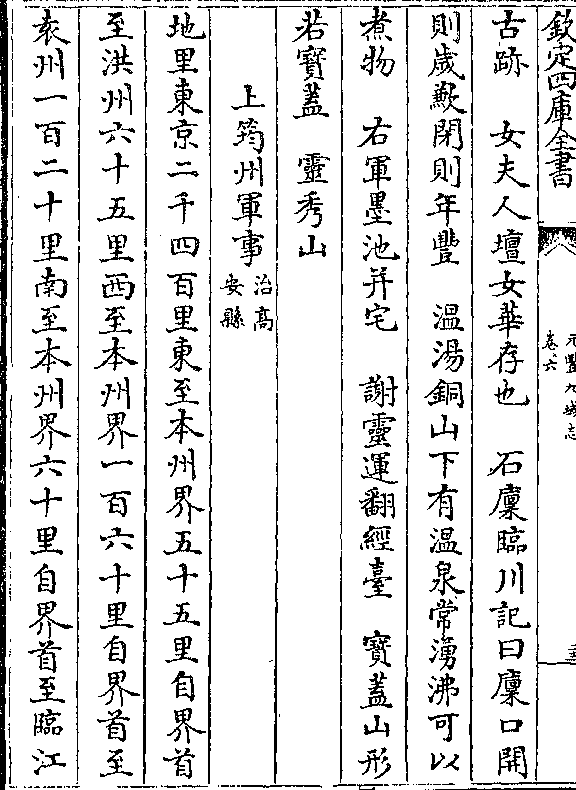 欽定四庫全書
元豐九域志
卷六
古跡　女夫人壇女華存也　石廩臨川記曰廩口開
則歲歉閉則年豐　温湯銅山下有温泉常湧沸可以
煮物　右軍墨池并宅　謝靈運翻經臺　寶蓋山形
若寶蓋　靈秀山
上筠州軍事治高安縣
地里東京二千四百里東至本州界五十五里自界首
至洪州六十五里西至本州界一百六十里自界首至
袁州一百二十里南至本州界六十里自界首至臨江